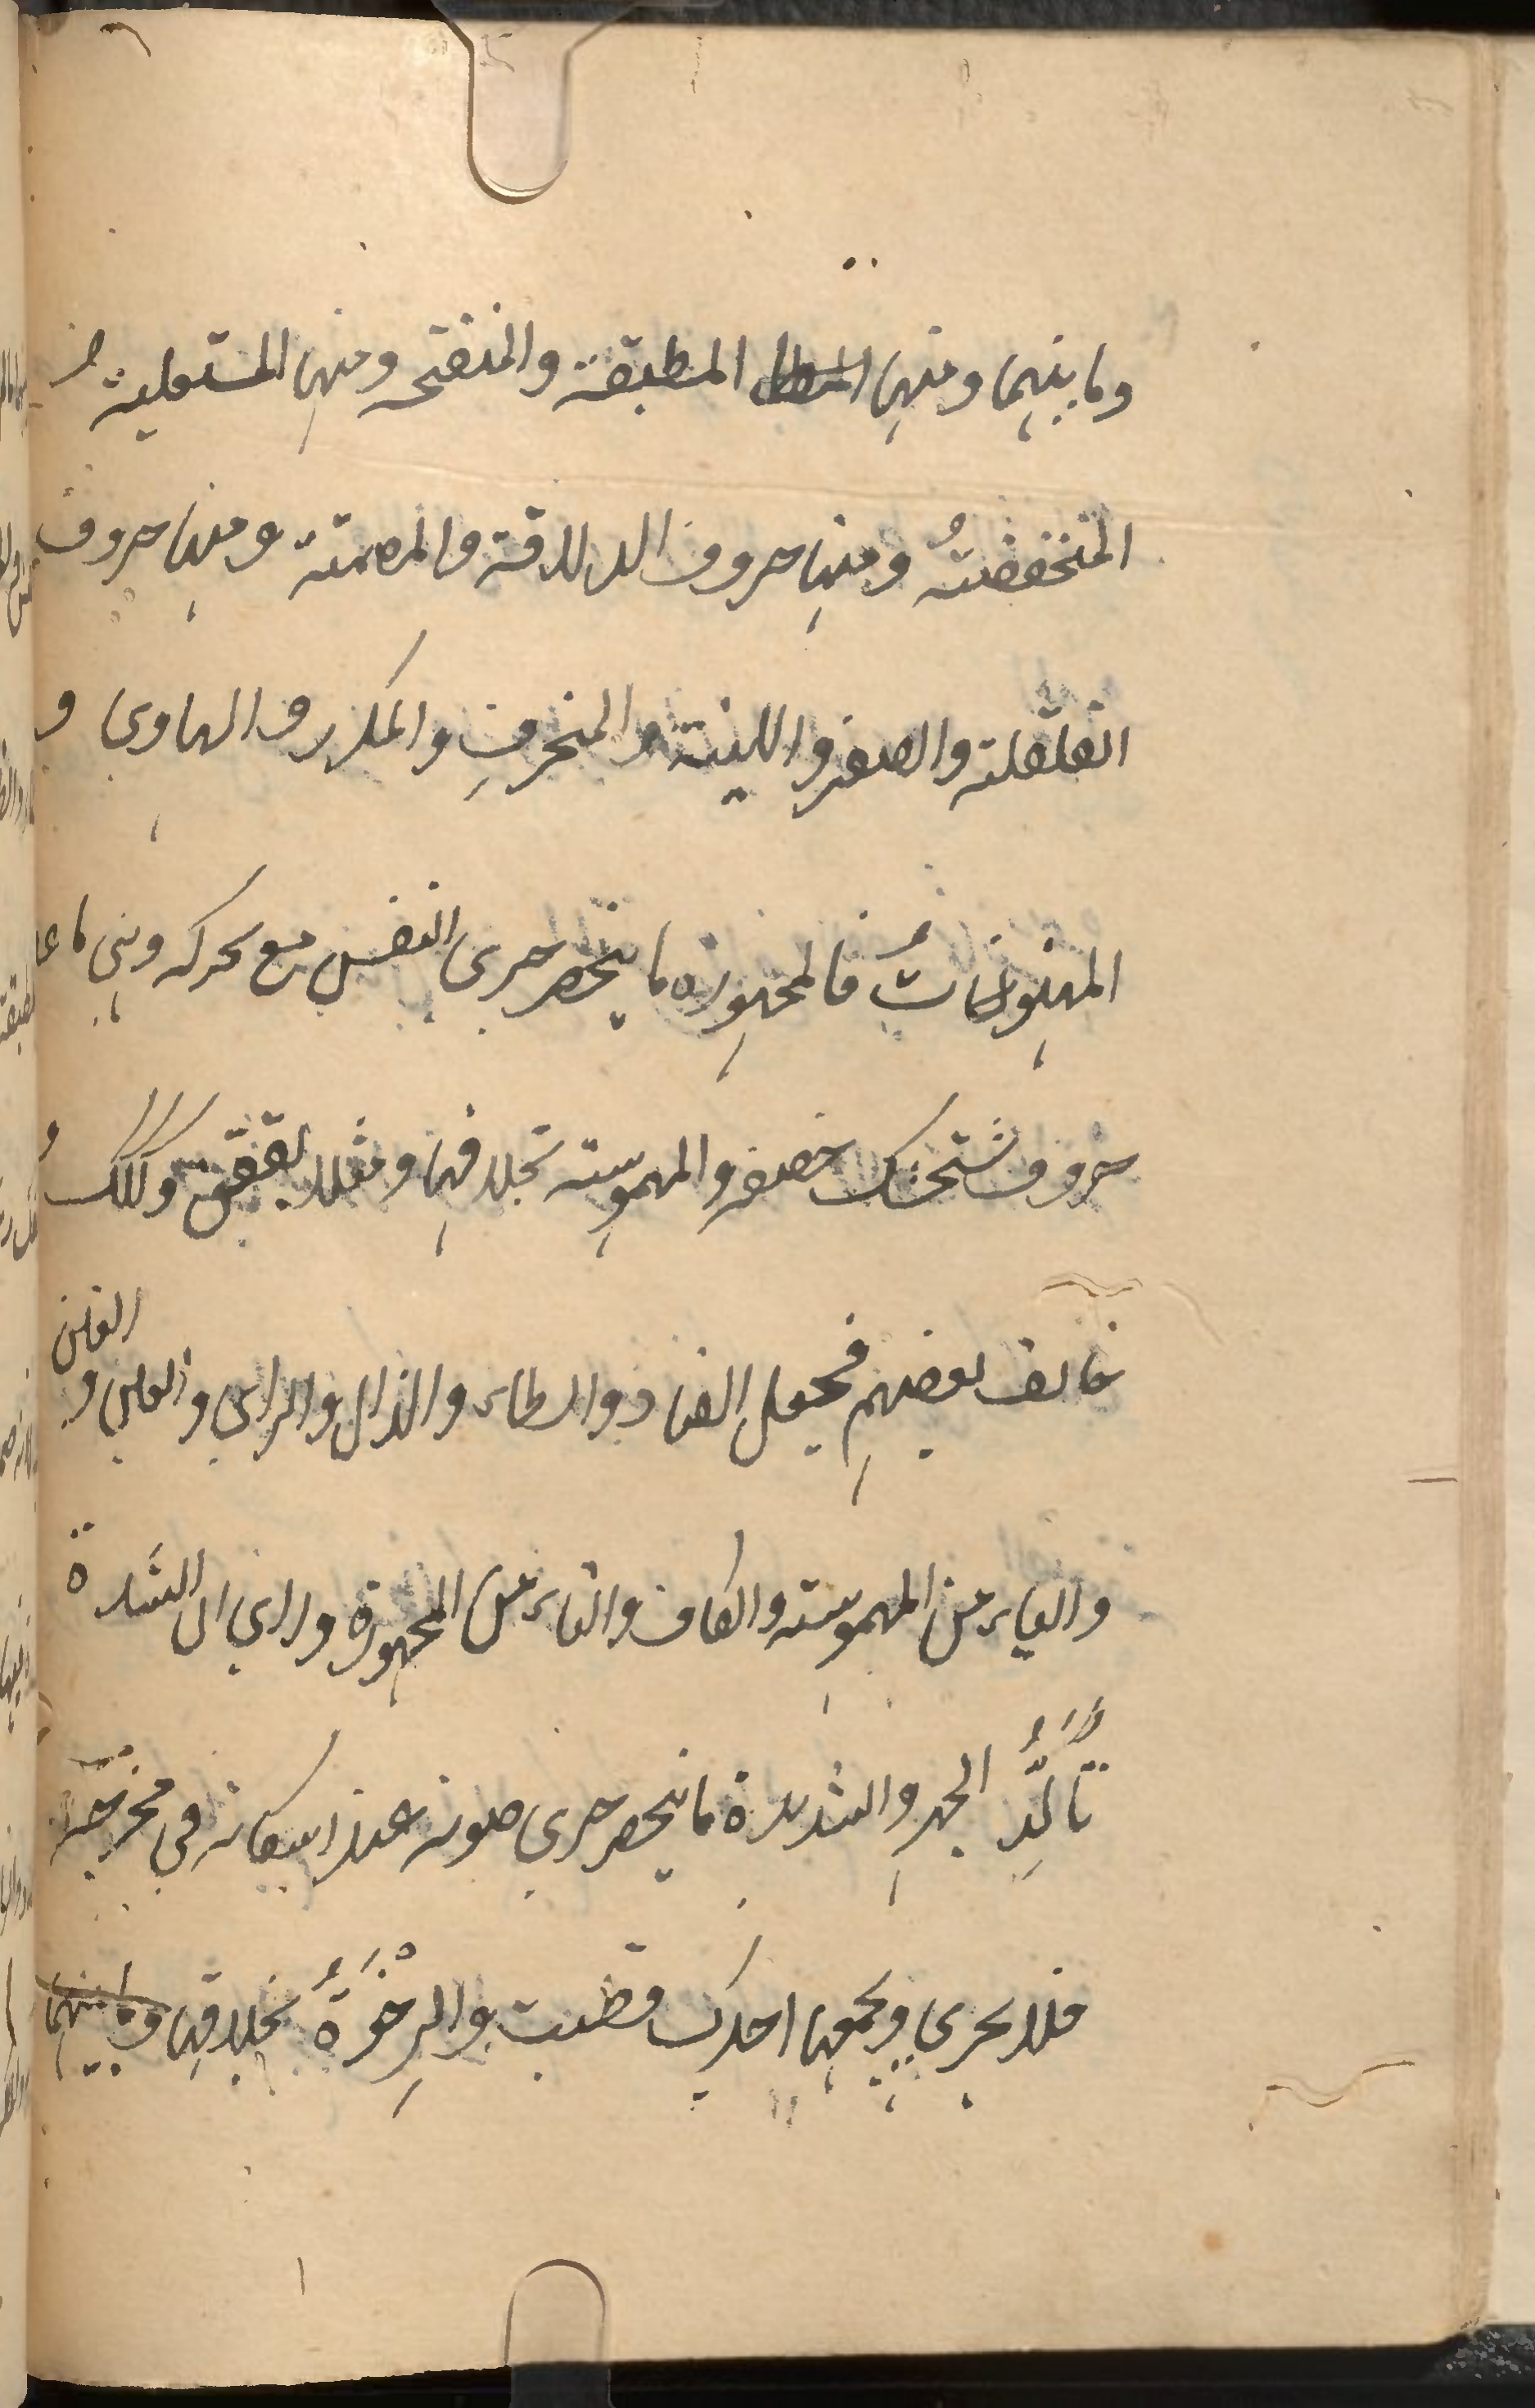 وما بينهما ومنها المطبقة والمنفتحه ومنها المستعلية
المنخفضةُ ومنها حروف الدلاقة والمصمتة ومنها حروف
القلقلة والصفير واللينة والمنحرفِ والمكرر والهاوي و
فالمجهورة ما ينحصر جرى النفس مع تحركه وهي ما عدا
حروف ستشحثك خصفه والمهموسة بخلافها ومثلا بققق وككك و
خالف بعضهم فجعل الضاد والظاء والذال والزاي والعين و
الغين
والياء من المهموسة والكاف والتاء من المجهورة وراى ان الشدة
تأكّد الجهر والشديدة ما ينحصر جرى صوته عند اسكانه في مخرجه
فلا يجري ويجمعها اجدك قطبت والرِخْوَةُ بخلافها وما بينهما